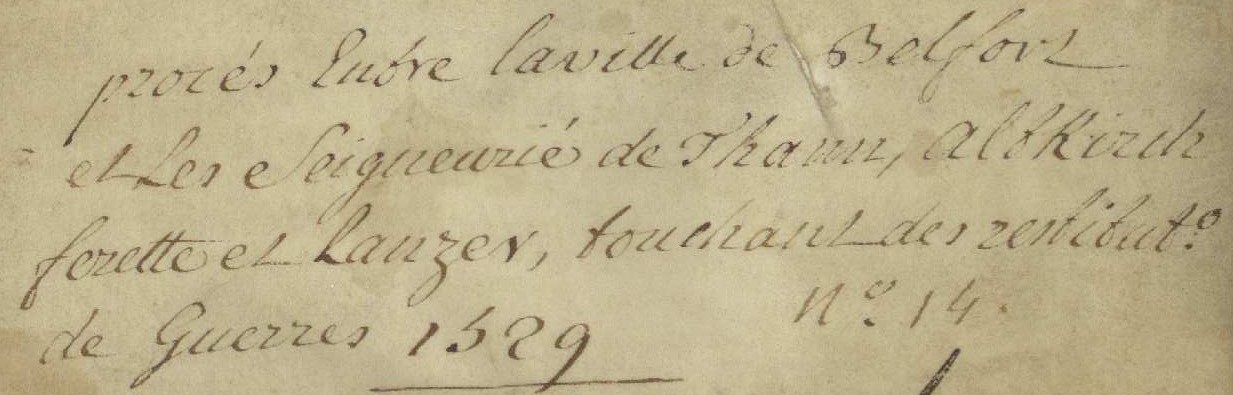 procés Entre la ville de Belfort
et Les Seigneurié de Thann, altKirch
ferette et Lanzer, touchant des restitut.º
de Guerres 1529 N.º 14.